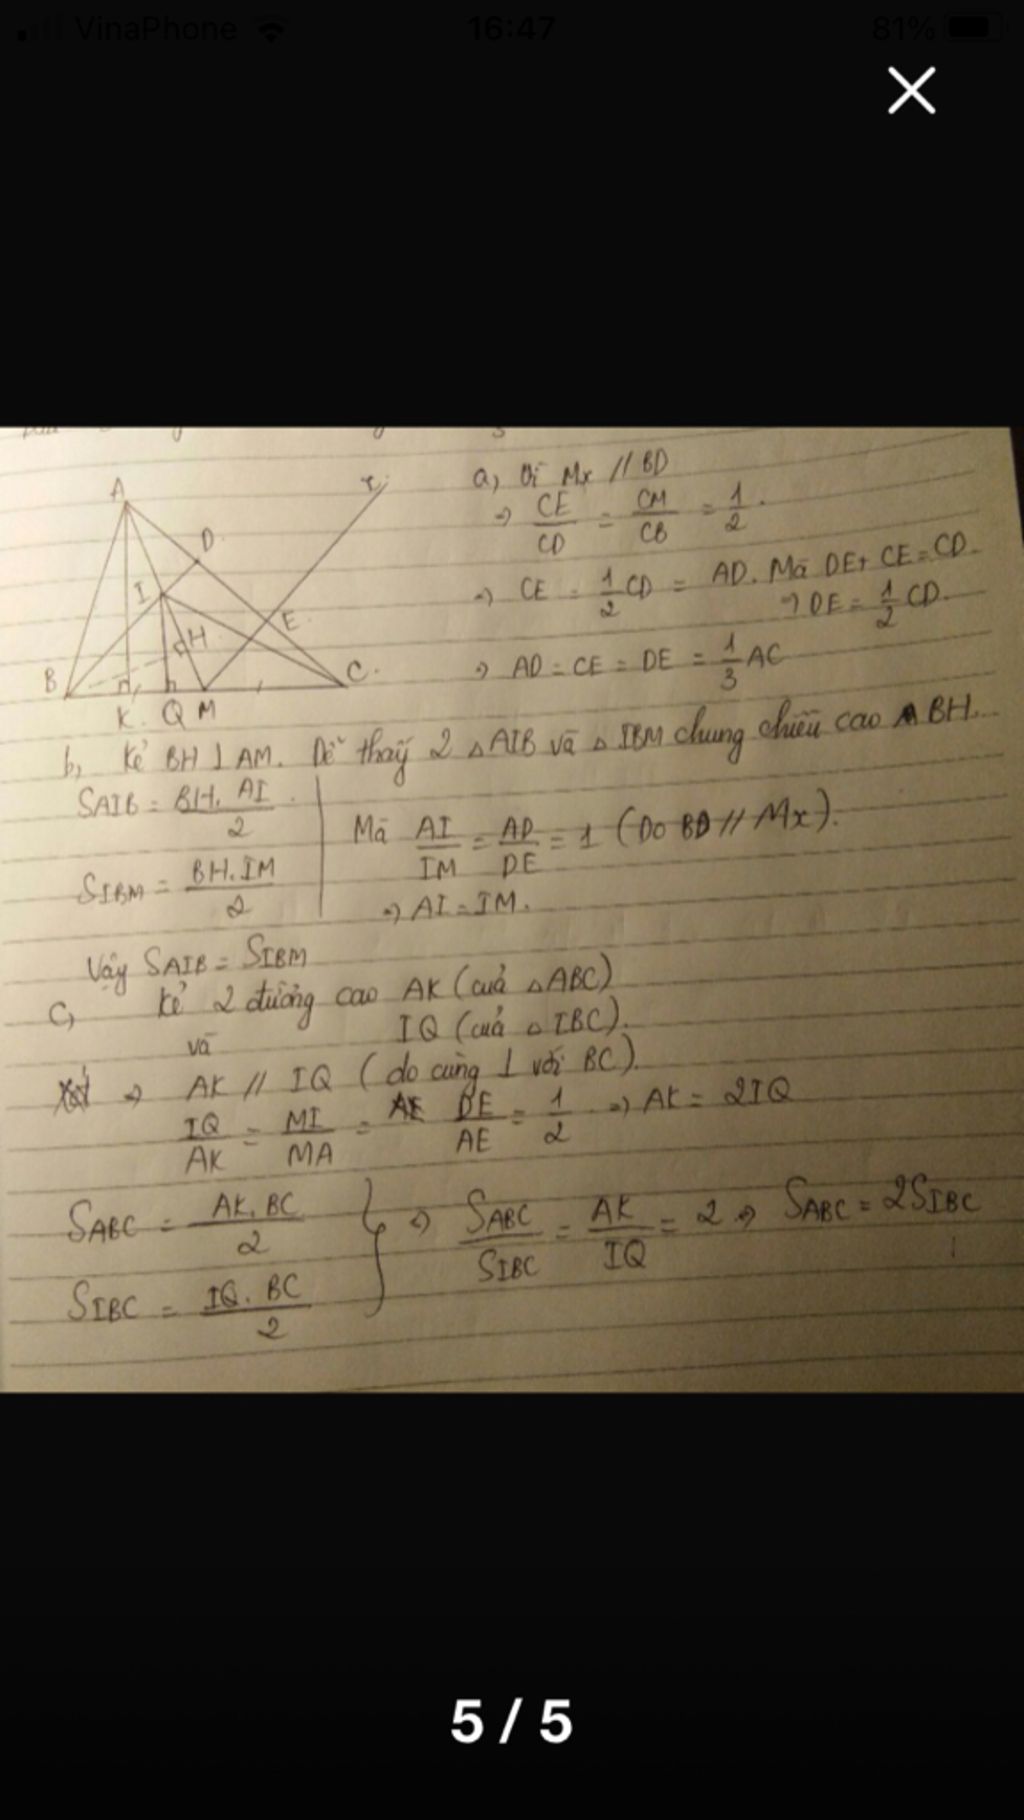 VinaPhone 16:47 81%
A
x
D
I
H
E
B
C
K Q M
a, Vì Mx // BD
=> CE/CD = CM/CB = 1/2.
=> CE = 1/2 CD = AD. Mà DE + CE = CD.
=> DE = 1/2 CD.
=> AD = CE = DE = 1/3 AC
b, Kẻ BH ⊥ AM. Dễ thấy 2 △AIB và △IBM chung chiều cao BH.
SAIB = BH. AI/2
SIBM = BH. IM/2
Mà AI/IM = AD/DE = 1 (Do BD // Mx).
=> AI = IM.
Vậy SAIB = SIBM
c, Kẻ 2 đường cao AK (của △ABC)
và IQ (của △IBC).
=> AK // IQ (do cùng ⊥ với BC).
IQ/AK = MI/MA = DE/AE = 1/2 => AK = 2IQ
SABC = AK. BC/2
SIBC = IQ. BC/2
} => SABC/SIBC = AK/IQ = 2 => SABC = 2SIBC
5 / 5